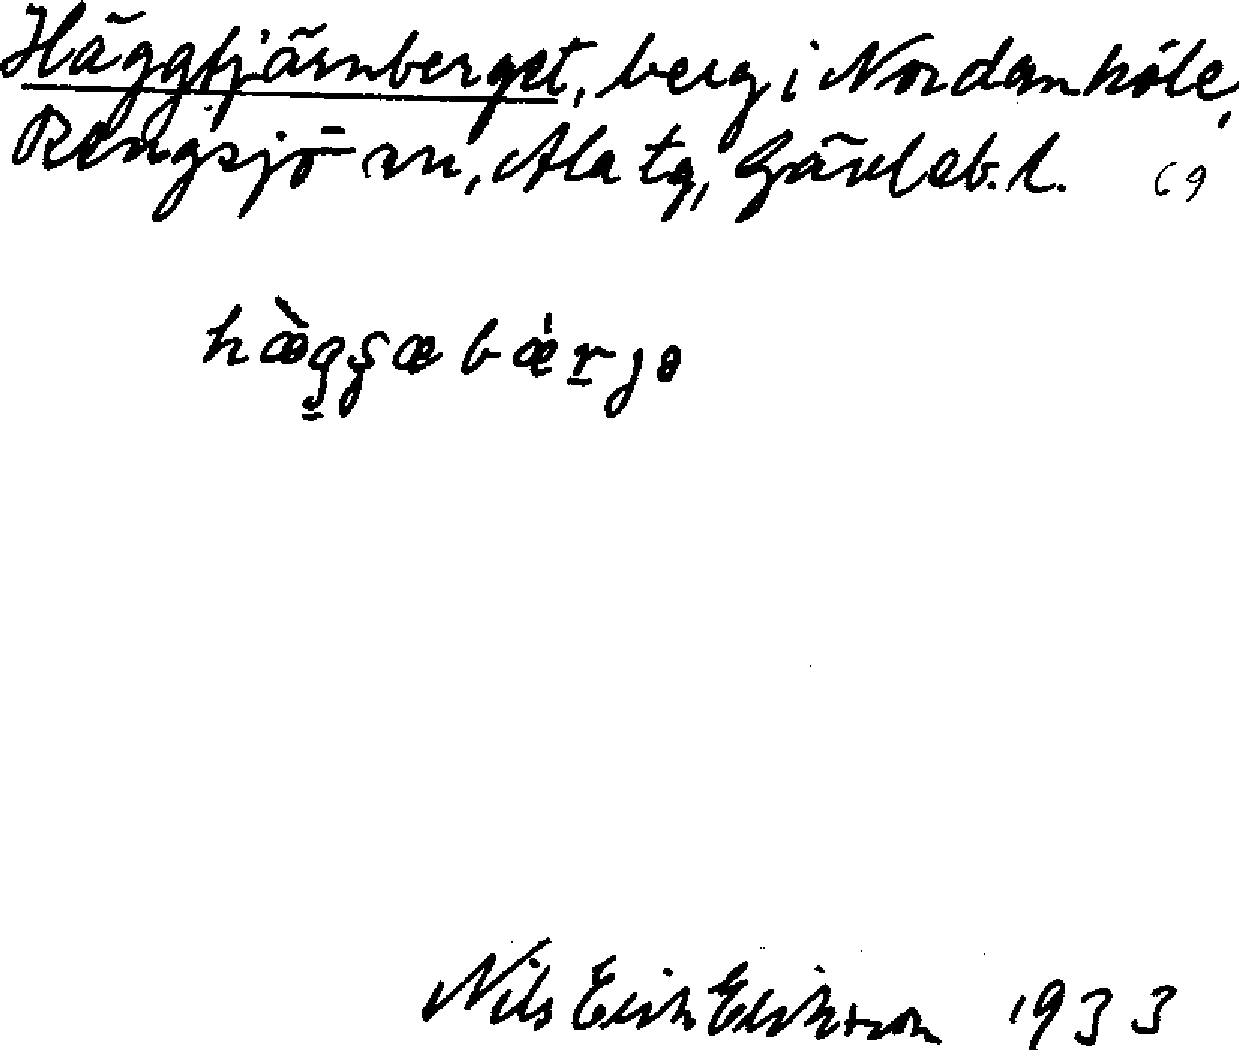 Häggtjärnberget, berg i Nordanhöle,
Rengsjö sn, Ala tg, Gävleb. l. 69
hæ̀gg̨æbǽrjə
Nils Erik Eriksson 1933